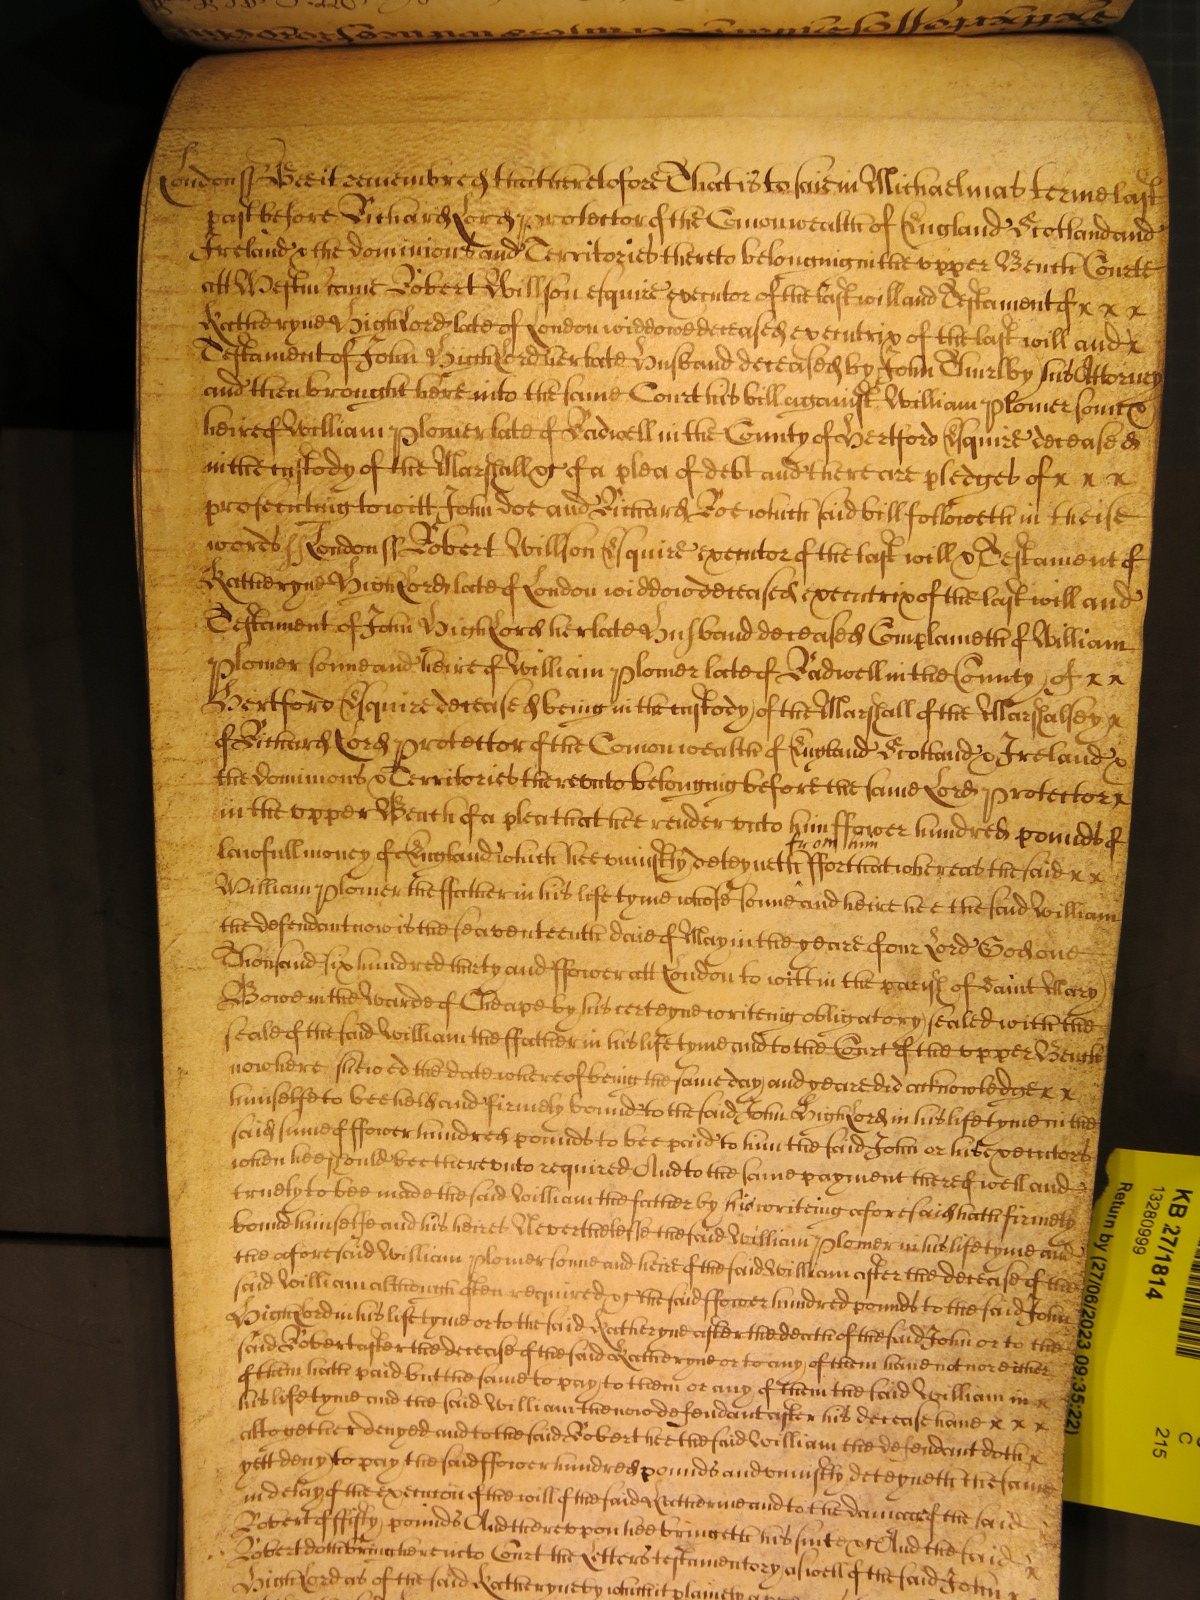 London ss Bee it remembred that heretofore That is to saie in Michaelmas terme last
past before Richard Lord Protector of the Comonwealth of England Scotland and
Ireland & the dominions and Territories thereto belonging in the vpper Bench Courte
att Westm came Robert Willson esquire executor of the last will and Testament of x x x
Katheryne HighLord late of London widdowe deceased executrix of the last will and x
Testament of John HighLord her late Husband deceased by John Thurlby his Attorney
and then brought here into the same Court his bill against William Plomer sonne &
heire of William Plomer late of Radwell in the County of Hertford Esquire deceased
in the custody of the Marshall &c of a plea of debt and there are pledges of x x x
prosecuting to witt John Doe and Richard Roe which said bill followeth in theise
words ss London ss Robert Willson Esquire executor of the last will & Testament of
Katheryne HighLord late of London widdow deceased executrix of the last will and
Testament of John HighLord her late Husband deceased Complaineth of William
Plomer sonne and heire of William Plomer late of Radwell in the County of x x
Hertford Esquire deceased being in the custody of the Marshall of the Marshalsey x
of Richard Lord Protector of the Comonwealth of England Scotland & Ireland &
the dominions & Territories therevnto belonging before the same Lord Protector x
in the vpper Bench of a plea that hee render vnto him ffower hundred pounds of
from him
lawfull money of England which hee vniustly deteyneth ffor that whereas the said x x
William Plomer the ffather in his life tyme whose sonne and heire hee the said William
the defendant now is the seaventeenth daie of May in the yeare of our Lord God one
Thousand six hundred thirty and ffower att London to witt in the parish of Saint Mary
Bowe in the Warde of Cheape by his certeyne writeing obligatory sealed with the
seale of the said William the ffather in his life tyme and to the Court of the vpper Bench
now here shewed the date whereof being the same day and yeare did acknowledge x x
himselfe to bee held and firmely bound to the said John HighLord in his life tyme in the
said sume of ffower hundred pounds to bee paid to him the said John or his executors
when hee should bee therevnto required And to the same payment thereof well and
truely to bee made the said William the father by his writeing aforesaid hath firmely
bound himselfe and his heires Neverthelesse the said William Plomer in his life tyme and
the aforesaid William Plomer sonne and heire of the said William after the decease of the
said William although often required &c the said ffower hundred pounds to the said John
HighLord in his life tyme or to the said Katheryne after the death of the said John or to the
said Robert after the decease of the said Katheryne or to any of them have not nor either
of them hath paid but the same to pay to them or any of them the said William in x
his life tyme and the said William the now defendant after his decease have x x x
altogether denyed and to the said Robert hee the said William the defendant doth x
yett deny to pay the said ffower hundred pounds and vniustly deteyneth the same
in delay of the execution of the will of the said Katherine and to the damage of the said
Robert of ffifty pounds And therevpon hee bringeth his suite &c And the said
Robert doth bring here into Court the Letters testamentory aswell of the said John x
HighLord as of the said Katheryne by which it plainely
KB 27/1814
13280999
Return by (27/06/2023 09:35:22)
C
215